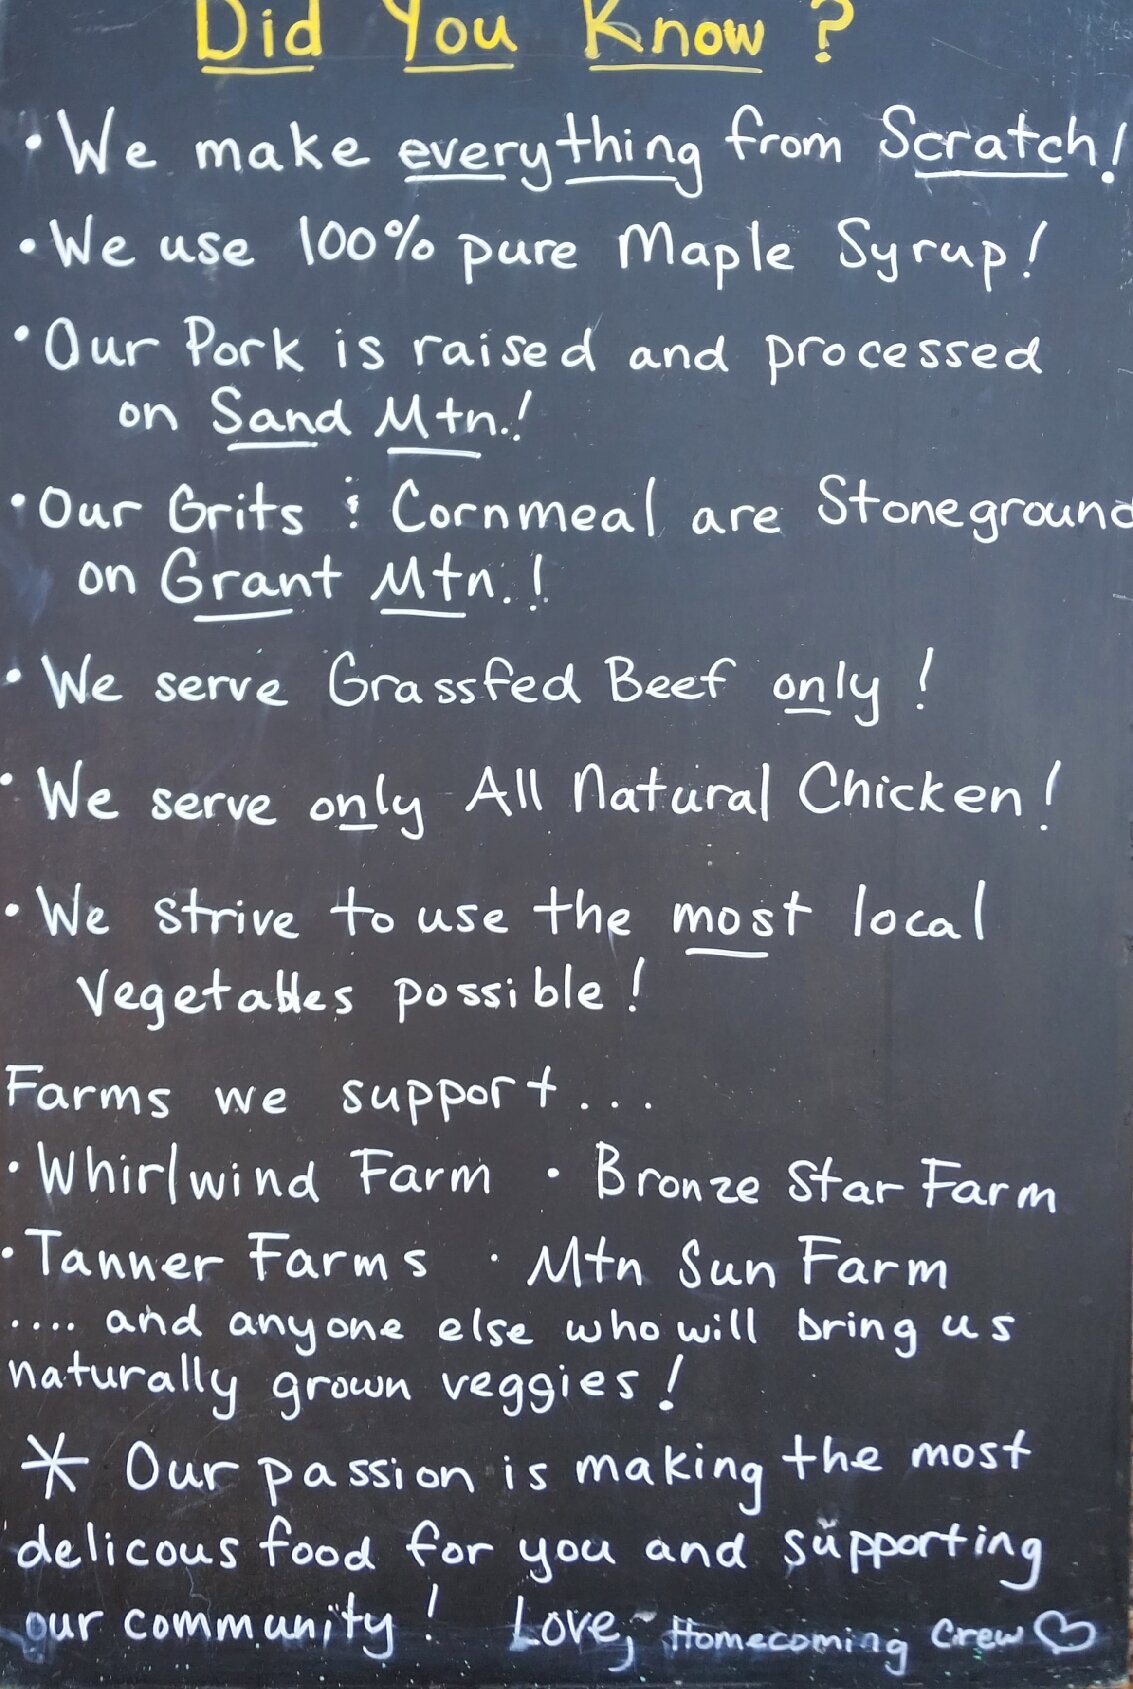 Did You Know?
• We make everything from Scratch!
• We use 100% pure Maple Syrup!
• Our Pork is raised and processed
on Sand Mtn.!
• Our Grits & Cornmeal are Stoneground
on Grant Mtn.!
• We serve Grassfed Beef only!
• We serve only All Natural Chicken!
• We strive to use the most local
Vegetables possible!
Farms we support...
• Whirlwind Farm • Bronze Star Farm
• Tanner Farms • Mtn Sun Farm
.... and anyone else who will bring us
naturally grown veggies!
* Our passion is making the most
delicous food for you and supporting
our community! Love, Homecoming Crew ♡